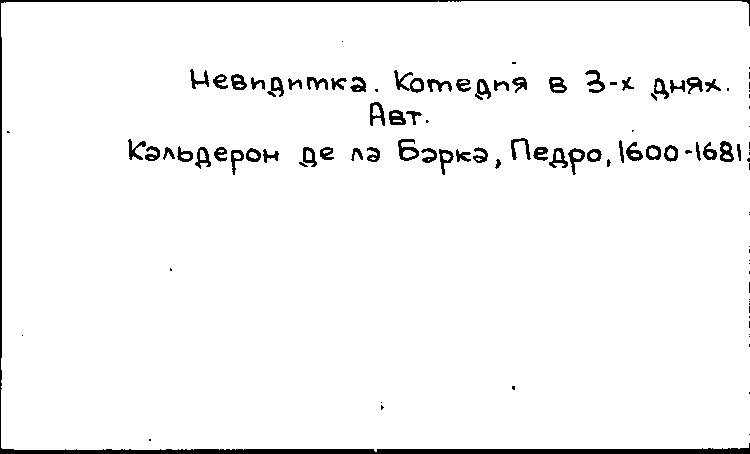 Невидимка. Комедия в 3-х днях.
Авт.
Кальдерон де ла Барка, Педро, 1600-1681.